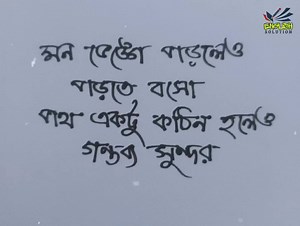 মন ভেঙ্গে পড়লেও
পড়তে বসো
পথ একটু কঠিন হলেও
গন্তব্য সুন্দর
SOLUTION